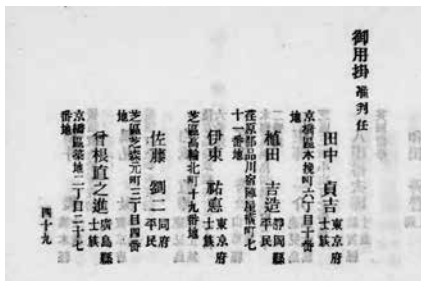 御用掛 准判任
田中 貞吉 東京府士族
京橋區木挽町六丁目十番地
植田 吉造 靜岡縣士族
荏原郡品川宿陣屋橫町七十一番地
伊東 祐悳 東京府士族
芝區高輪北町十九番地
佐藤 劉二 同府平民
芝區芝森元町三丁目四番地
曾根直之進 廣島縣士族
京橋區築地二丁目二十七番地
四十九